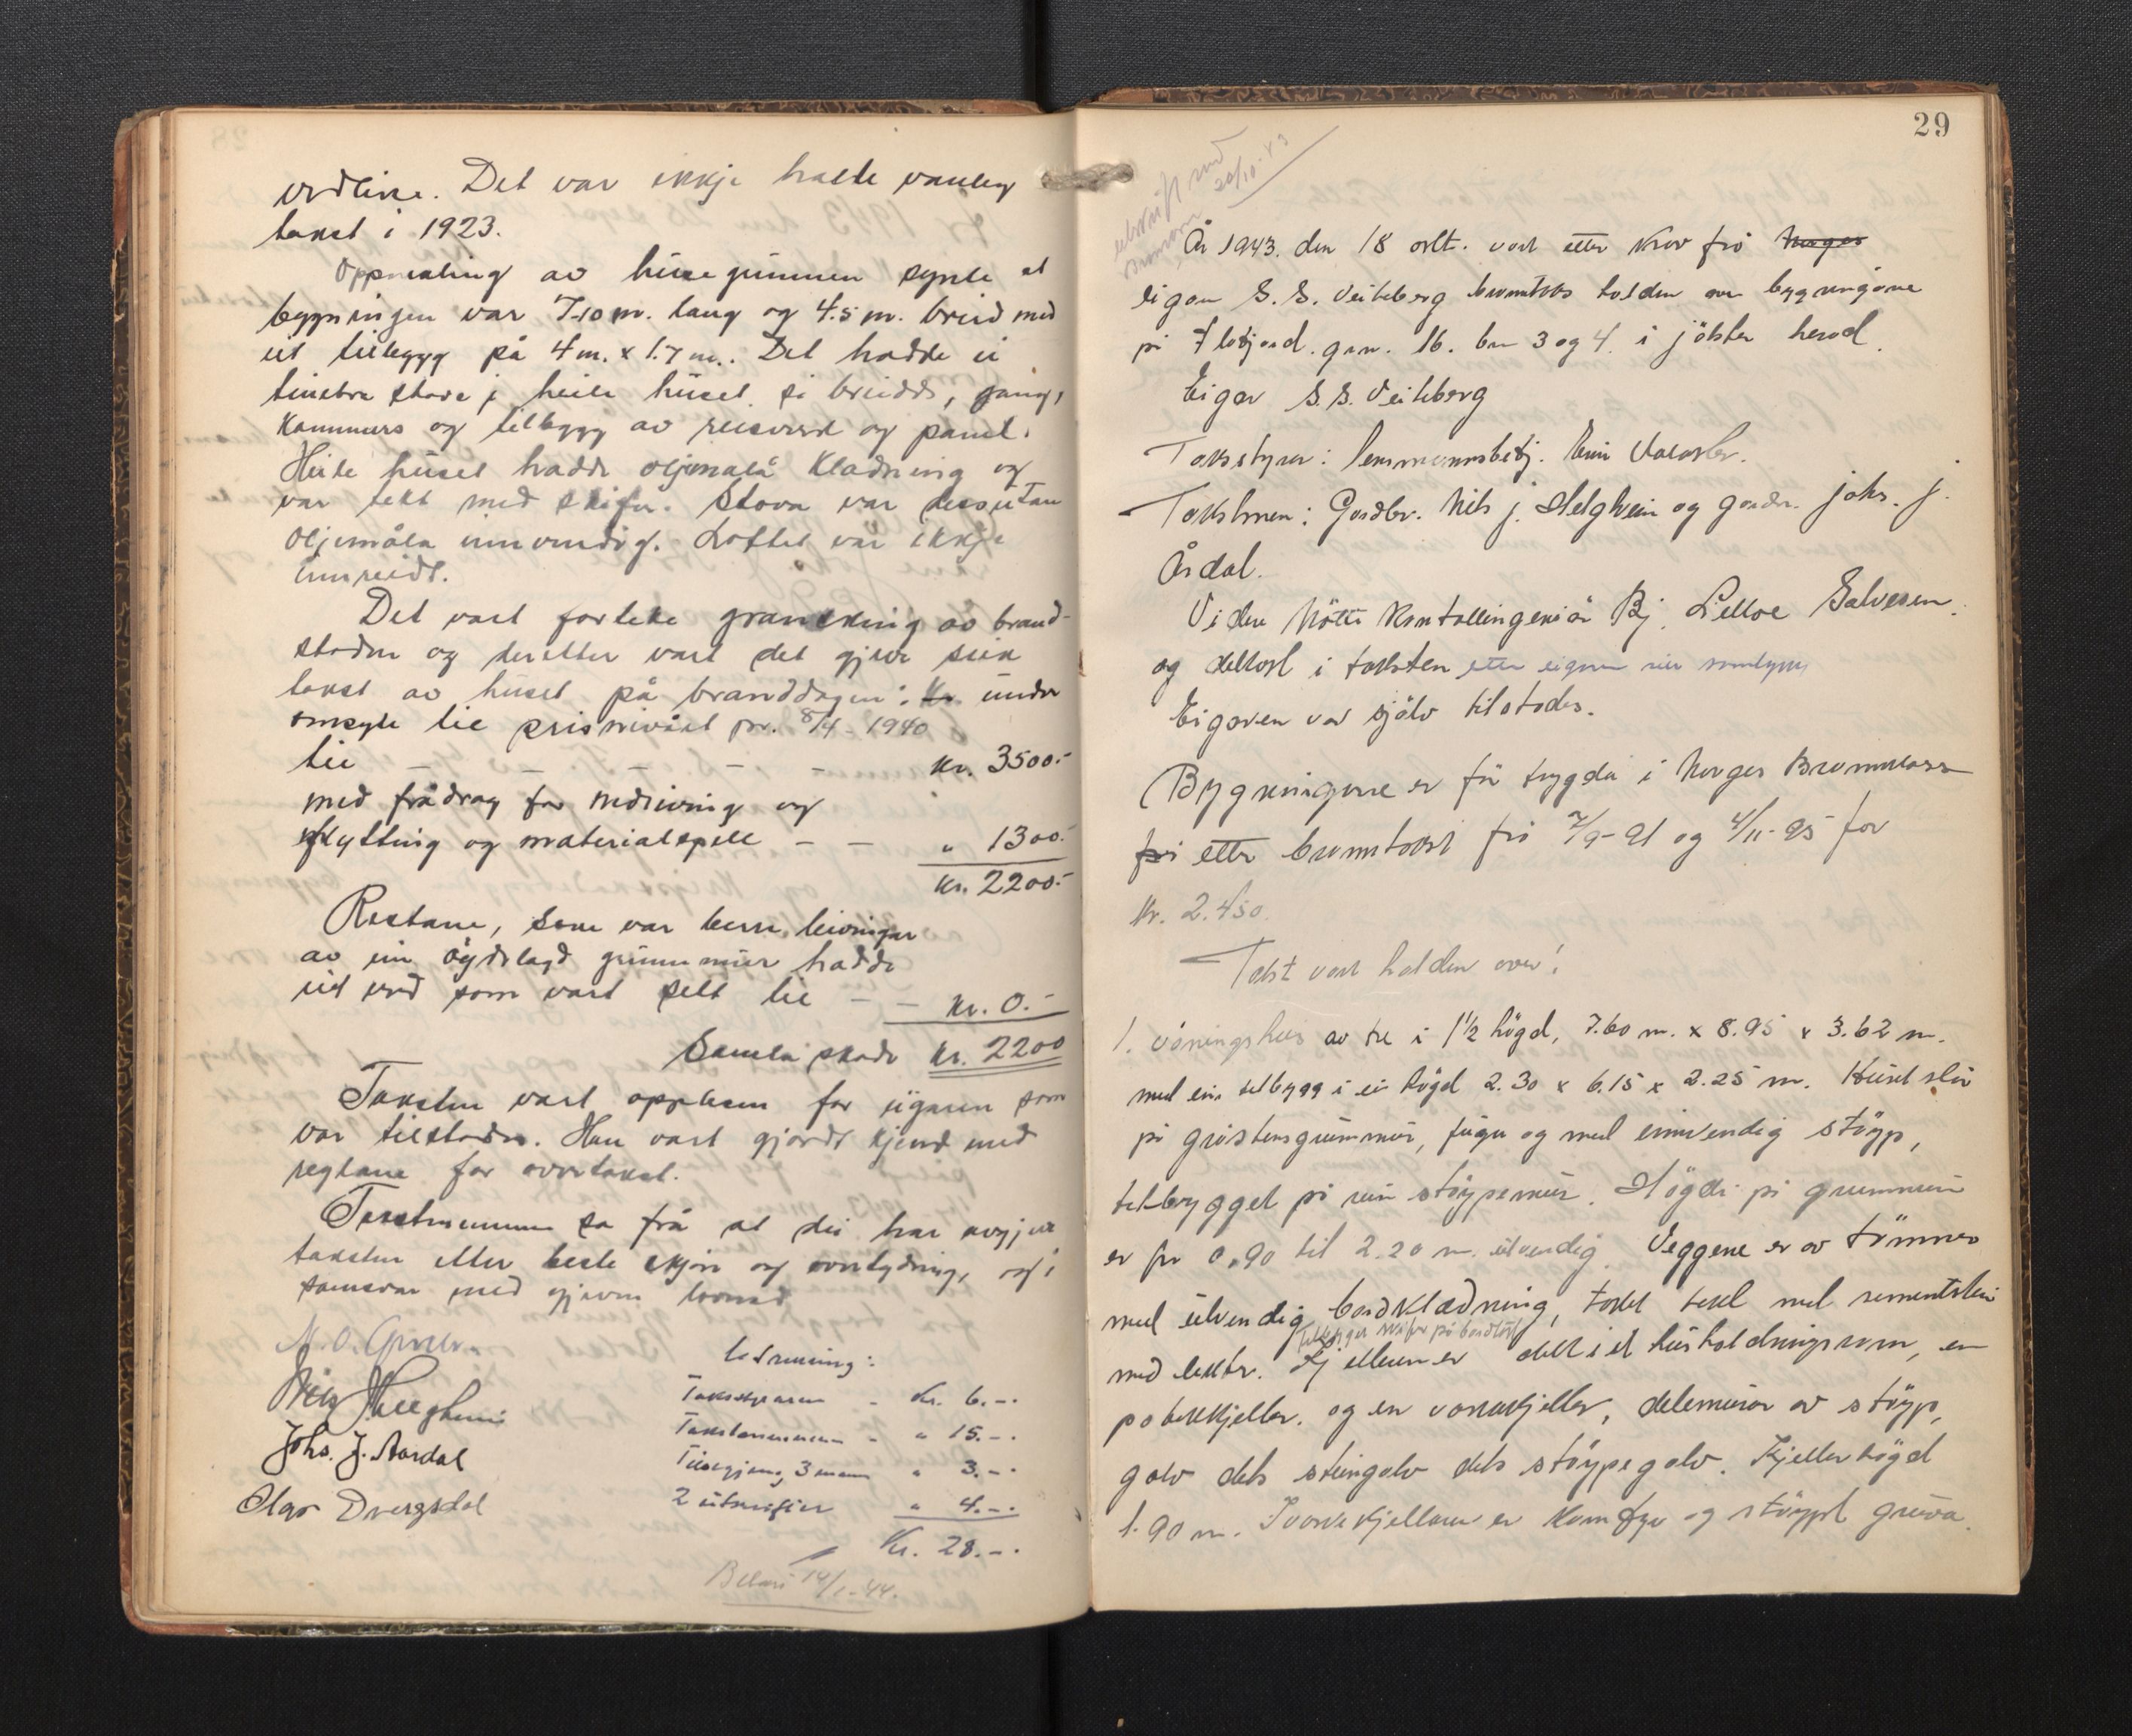 verdlike. Det var ikkje halde vanleg
takst i 1923.
Oppmaling av husegrunnen synte at
bygningen var 7.10 m. lang og 4.5 m. breid med
eit tilbygg på 4 m. x 1.7 m. Det hadde ei
timbra stove i heile huset si breidd, gang,
kammers og tilbygg av reisverd og panel.
Heile huset hadde oljemåla kledning og
var tekt med skifer. Stova var dessutan
oljemåla innvendig. Loftet var ikkje
innreidt.
Det vart forteke gransking av brand-
staden og deretter vart det gjeve slik
takst av huset på branddagen: under
omsyn til prisnivået pr. 8/4-1940
til — — — — — kr. 3500.-
med frådrag for nedriving og
flytting og materialspell — — " 1300.-
kr. 2200.-
Restane, som var berre leivningar
av ein øydelagd grunnmur hadde
eit verd som vart sett til — — kr. 0.-
Samla skade kr. 2200
Taksten vart opplesen for eigaren som
var tilstades. Han vart gjordt kjend med
reglane for overtakst.
Takstmennene sa frå at dei har avgjeve
taksten etter beste skjøn og overtyding, og i
samsvar med gjeven lovnad
Nils J. Helgheim
Johs. J. Aardal
Olga Dvergsdal
Utrekning:
Takstyraren - kr. 6.-.
Takstmennene - " 15.-.
Tilsegjing 3 mann " 3.-.
2 utskrifter " 4.-.
Kr. 28.-.
Betalt 14/1-44.
29
utskrift
20/10-43
År 1943. den 18 okt. vart etter krav frå Norges
eigar S. S. Veiteberg branntakst halden over bygningane
på Flatjord. grn. 16. bn 3 og 4. i Jölster herad.
Eigar S. S. Veiteberg
Takststyrar: lensmannsbetj.
Takstmen: Gardbr. Nils J. Helgheim og gardbr. Johs. J.
Årdal.
Vidare møtte kontrollingeniør Bj. Lilloe Salvesen.
og deltok i taksten etter eigaren sitt samtykke
Eigaren var sjölv tilstades.
Bygningane er för trygda i Norges Brannkasse
frå etter branntakst frå 7/9-21 og 4/11-25 for
Kr. 2.450.
Takst vart halden over:
1. Våningshus av tre i 1½ högd, 7.60 m. x 8.95 x 3.62 m.
med ein tilbygg i ei högd 2.30 x 6.15 x 2.25 m. Huset står
på gråstensgrunnmur, fuga og med innvendig støyp,
tilbygget på rein støypemur. Högdi på grunnmuren
er fra 0,90 til 2.20 m. utvendig. Veggene er av tömmer
med utvendig bordkledning, taket tekt med sementstein
Tilbygget skifer på bordtak
med lekter. Kjelleren er delt i et husholdningsrom, en
potetkjeller, og en vaskekjeller, delemurar av støyp,
golv dels steingolv dels støypegolv. Kjellerhögd
1.90 m. I vaskekjelleren er komfyr og støypt gruva.